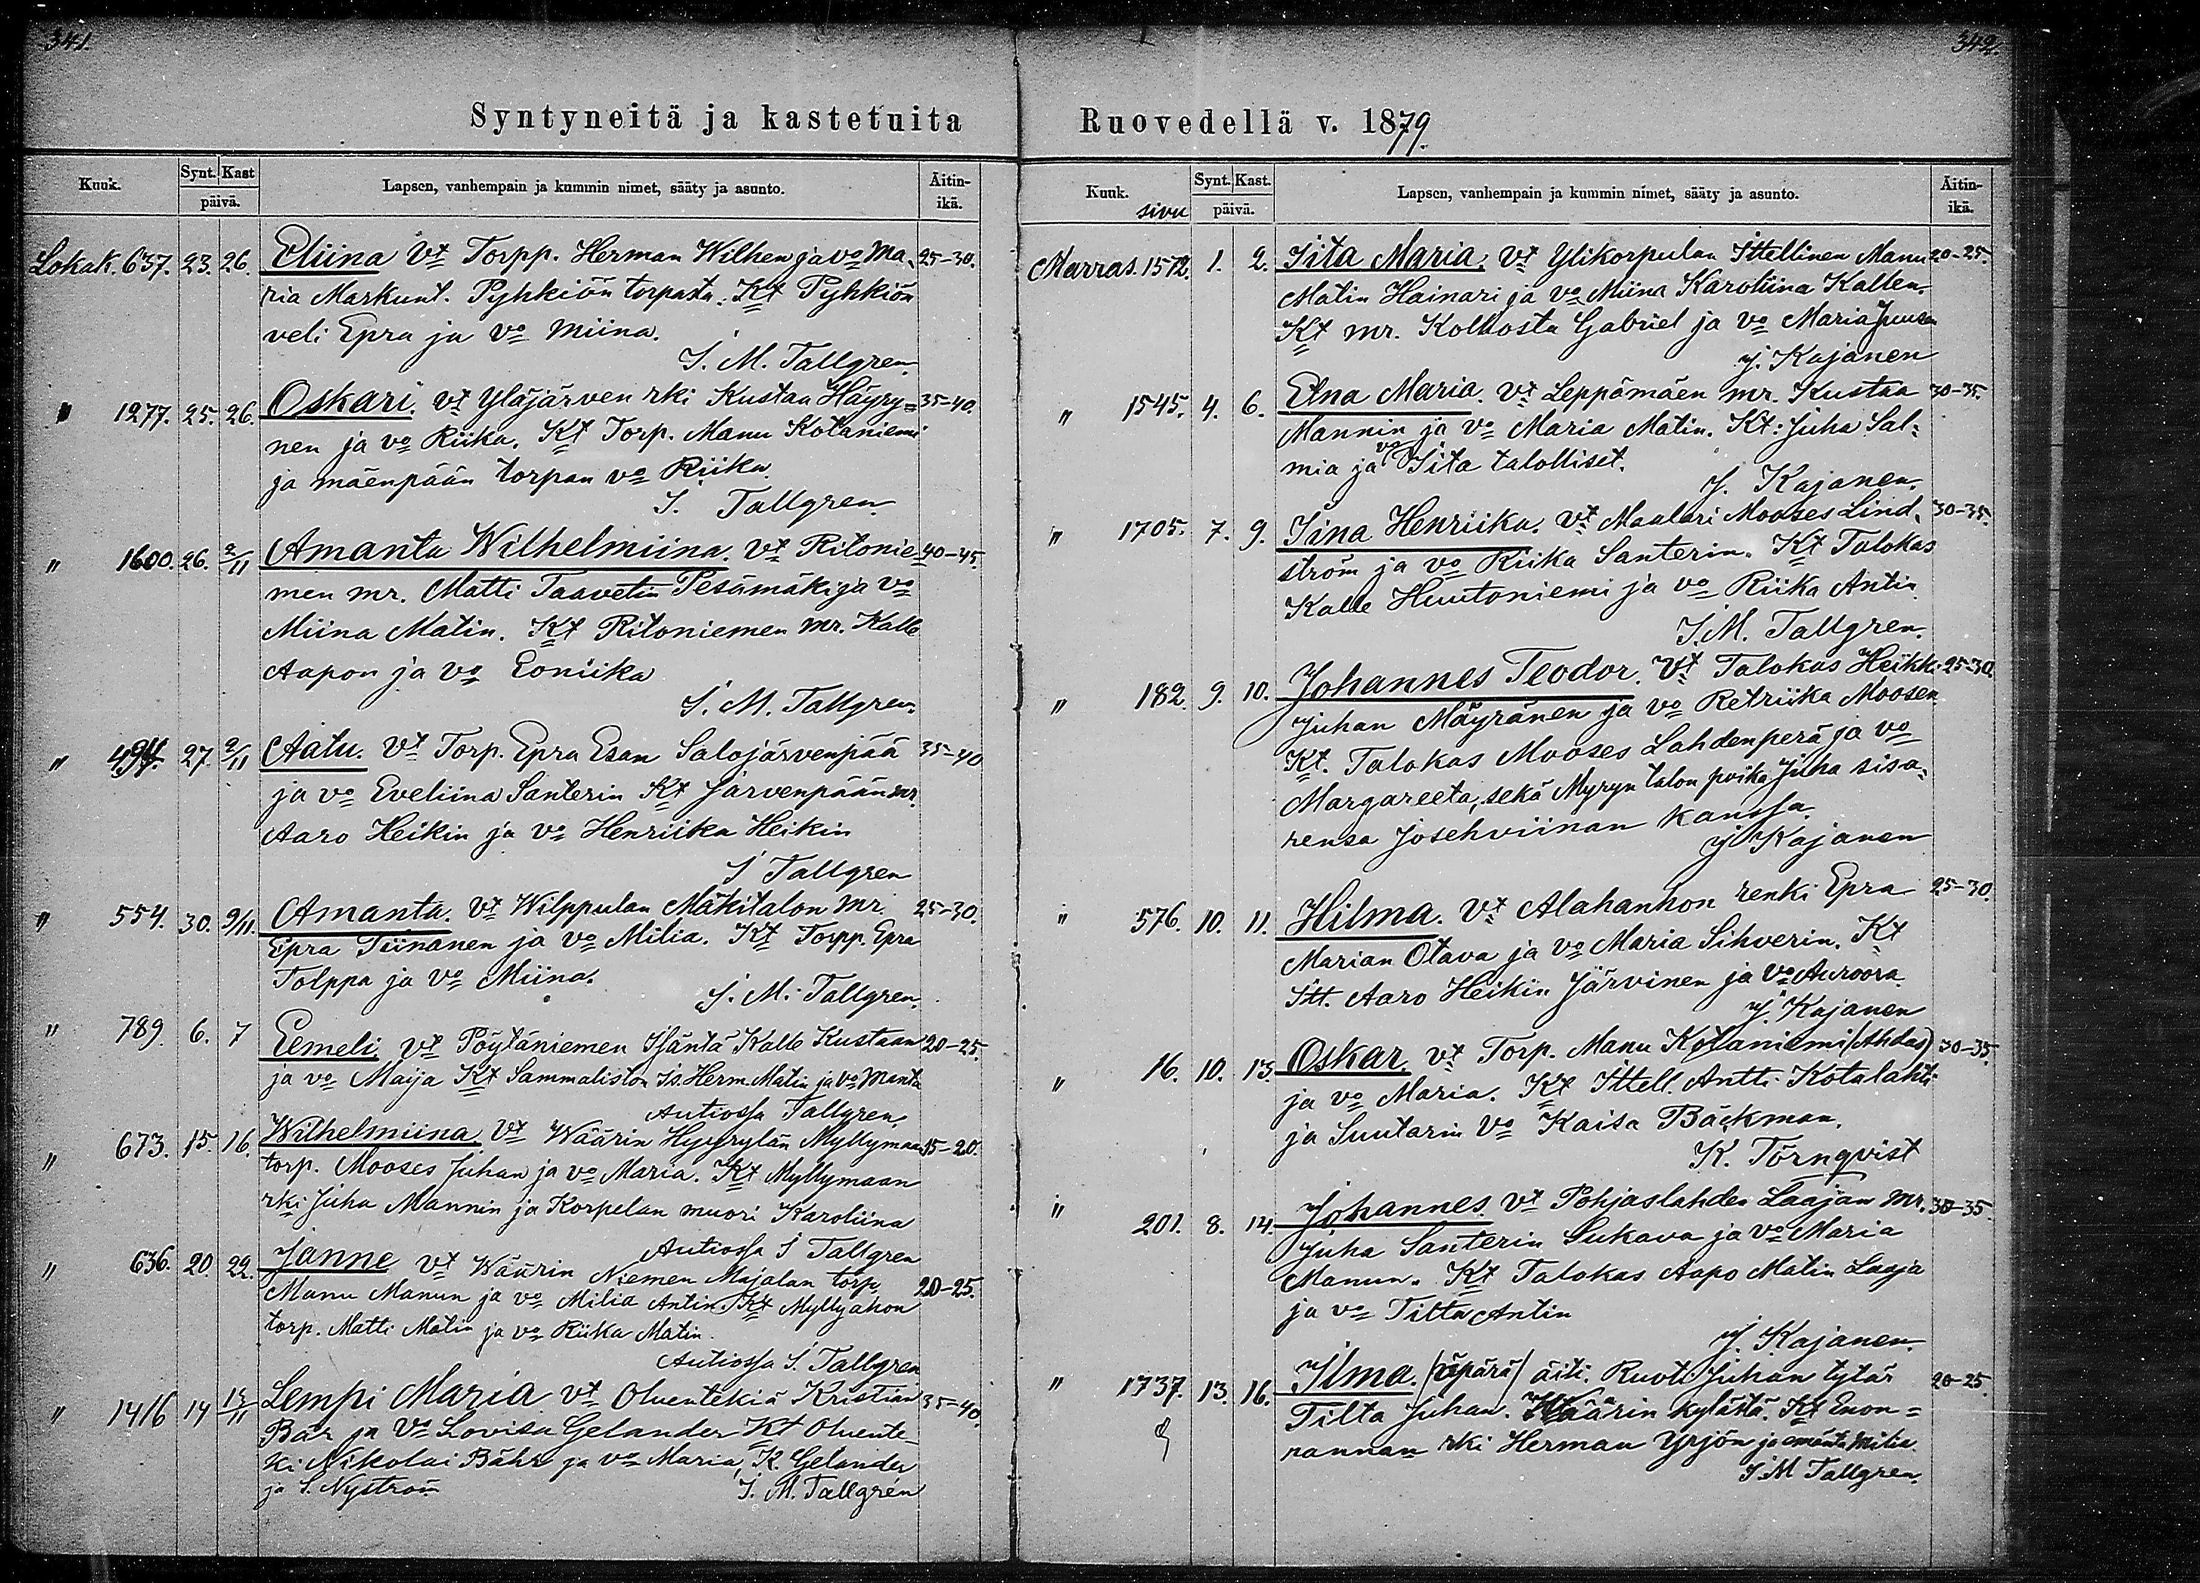 341.
Syntyneitä ja kastetuita
Kuuk. Synt. Kast päivä. Lapsen, vanhempain ja kummin nimet, sääty ja asunto. Äitin-ikä.
Lokak. 637. 23. 26. Eliina Vt Torpp. Herman Wilhen ja vo Ma- 25-30.
ria Markunt. Pyhkiön torpasta. Kt Pyhkiön
veli Epra ja vo Miina.
I. M. Tallgren.
" 1277. 25. 26. Oskari. vt Yläjärven rki Kustaa Häyry= 35-40.
nen ja vo Riika. Kt Torp. Manu Kotaniemi
ja mäenpään torpan vo Riika
I. Tallgren.
" 1600. 26. 2/11 Amanta Wilhelmiina. Vt Ritonie 40-45.
men mr. Matti Taavetin Pesämäki ja vo
Miina Matin. Kt Ritoniemen mr. Kalle
Aapon ja vo Eoniika
I. M. Tallgren.
" 494. 27. 2/11 Aatu. Vt Torp. Epra Esan Salojärvenpää 35-40
ja vo Eveliina Santerin Kt Järvenpään mr.
Aaro Heikin ja vo Henriika Heikin
I Tallgren
" 554. 30. 9/11. Amanta. Vt Wilppulan Mäkitalon mr. 25-30.
Epra Tiinanen ja vo Milia. Kt Torpp. Epra
Tolppa ja vo Miina.
I. M. Tallgren.
" 789. 6. 7 Eemeli vt Pöytäniemen Isäntä Kalle Kustaan 20-25.
ja vo Maija Kt Sammaliston Is. Herm. Matin ja vo Manta
Autiossa Tallgren.
" 673. 15. 16. Wilhelmiina. Vt Wäärin Hyyrylän Myllymaan 15-20.
torp. Mooses Juhan ja vo Maria. Kt Myllymaan
rki Juha Mannin ja Korpelan muori Karoliina
Autiossa I Tallgren
" 636. 20. 22. Janne vt Wäärin Niemen Majalan torp.
Manu Manun ja vo Milia Antin Kt Myllyahon 20-25.
torp. Matti Matin ja vo Riika Matin.
Autiossa I. Tallgren
" 1416 14 Lempi Maria vt Oluentekiä Kristian 35-40.
Bär ja Vo Lovisa Gelander Kt Oluente-
ki Nikolai Bähr ja vo Maria, K. Gelander
ja S. Nyström I. M. Tallgren
342.
Ruovedellä v. 1879.
Kuuk. sivu Synt. Kast. päivä. Lapsen, vanhempain ja kummin nimet, sääty ja asunto. Äitin-ikä.
Marras. 1572. 1. 2. Iita Maria. Vt Ylikorpulan Ittellinen Manu 20-25.
Matin Hainari ja vo Miina Karoliina Kallen.
Kt mr. Kolhosta Gabriel ja vo Maria Juusen
J. Kajanen
" 1545. 4. 6. Elna Maria. Vt Leppämäen mr. Kustaa 30-35.
Mannin ja vo Maria Matin. Kt: Juha Sal-
mia ja vo Iita talolliset.
J. Kajanen.
" 1705. 7. 9. Iina Henriika. Vt Maalari Mooses Lind- 30-35.
ström ja vo Riika Santerin. Kt Talokas
Kalle Huutoniemi ja vo Riika Antin
I. M. Tallgren.
" 182. 9. 10. Johannes Teodor. Vt Talokas Heikki 25-30.
Juhan Mäyränen ja vo Retriika Moosen
Kt. Talokas Mooses Lahdenperä ja vo
Margareeta, sekä Myryn talon poika Juha sisa-
rensa Josehviinan kanssa.
J Kajanen
" 576. 10. 11. Hilma. Vt Alahanhon renki Epra 25-30.
Marian Otava ja vo Maria Sihverin. Kt
Itt. Aaro Heikin Järvinen ja vo Auroora.
J. Kajanen
" 16. 10. 13. Oskar. vt Torp. Manu Kotaniemi (Ahdas) 30-35
ja vo Maria. Kt Ittell. Antti Kotalahti
ja Suutarin Vo Kaisa Bäckman.
K. Törnqvist
" 201. 8. 14. Johannes. vt Pohjaslahden Laajan mr. 30-35.
Juha Santerin Sukava ja vo Maria
Manun. Kt Talokas Aapo Matin Laaja
ja vo Tilta Antin
J. Kajanen.
" 1737. 13. 16. Ilma. (äpärä) äiti. Ruoti Juhan tytär 20-25
Tilta Juhan. Wäärin kylästä. Kt Enon=
rannan rki Herman Yrjön ja emäntä Milia.
I M Tallgren.